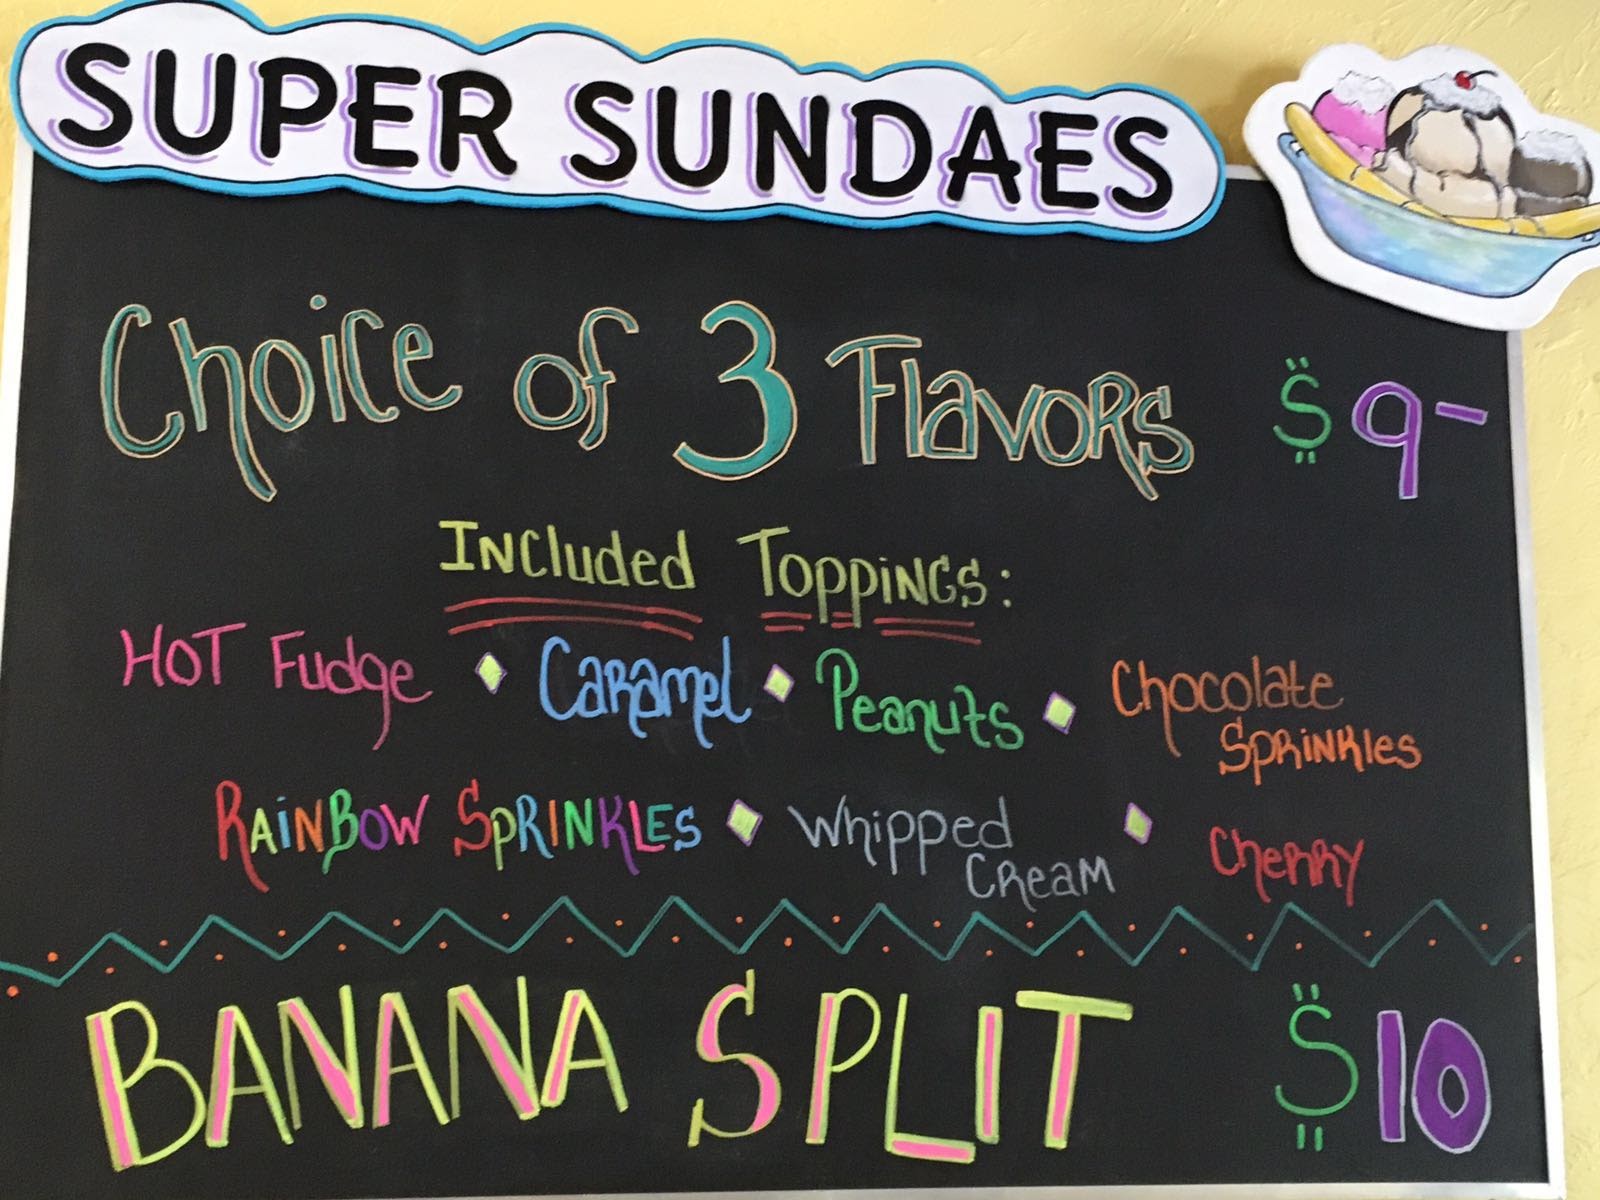 SUPER SUNDAES
Choice of 3 Flavors $9-
Included Toppings:
Hot Fudge Caramel Peanuts Chocolate Sprinkles
Rainbow Sprinkles Whipped Cream Cherry
BANANA SPLIT $10